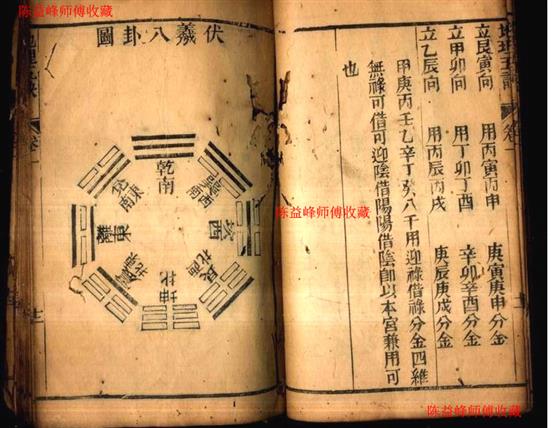 陈益峰师傅收藏
陈益峰师傅收藏
陈益峰师傅收藏
陈益峰师傅收藏
立艮寅向 用丙寅丙申 庚寅庚申分金
立甲卯向 用丁卯丁酉 辛卯辛酉分金
立乙辰向 用丙辰丙戌 庚辰庚戌分金
甲庚丙壬乙辛丁癸八干用迎祿借祿分金四維
無祿可借可迎陰借陽陽借陰卽以本宮兼用可
也
伏羲八卦圖
乾南
東南
離東
坤北
艮西北
坎西